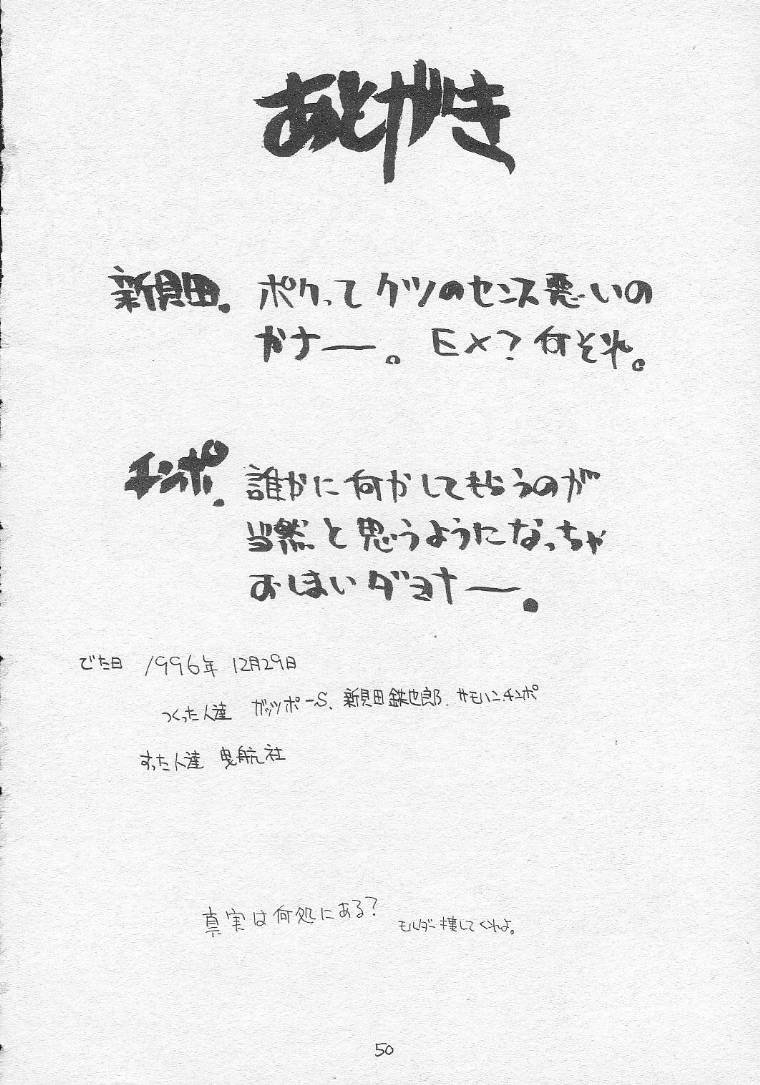 あとがき
新貝田. ボクってクツのセンス悪いの
カナー。EX?何それ。
チンポ. 誰かに何かしてもらうのが
当然と思うようになっちゃ
おしまいダヨナー。
でた日 1996年 12月29日
つくった人達 ガッツポーS、新貝田鉄也郎、サモハンチンポ
すった人達 曳航社
真実は何処にある? モルダー捜してくれよ。
50